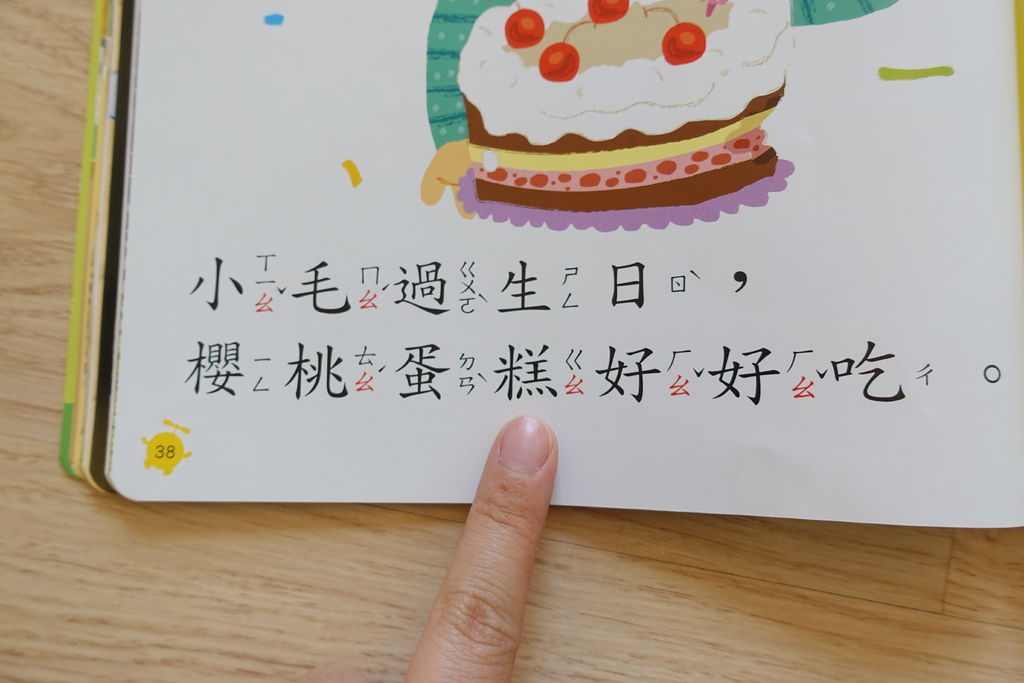 小ㄒㄧㄠˇ毛ㄇㄠˊ過ㄍㄨㄛˋ生ㄕㄥ日ㄖˋ，
櫻ㄧㄥ桃ㄊㄠˊ蛋ㄉㄢˋ糕ㄍㄠ好ㄏㄠˇ好ㄏㄠˇ吃ㄔ。
38